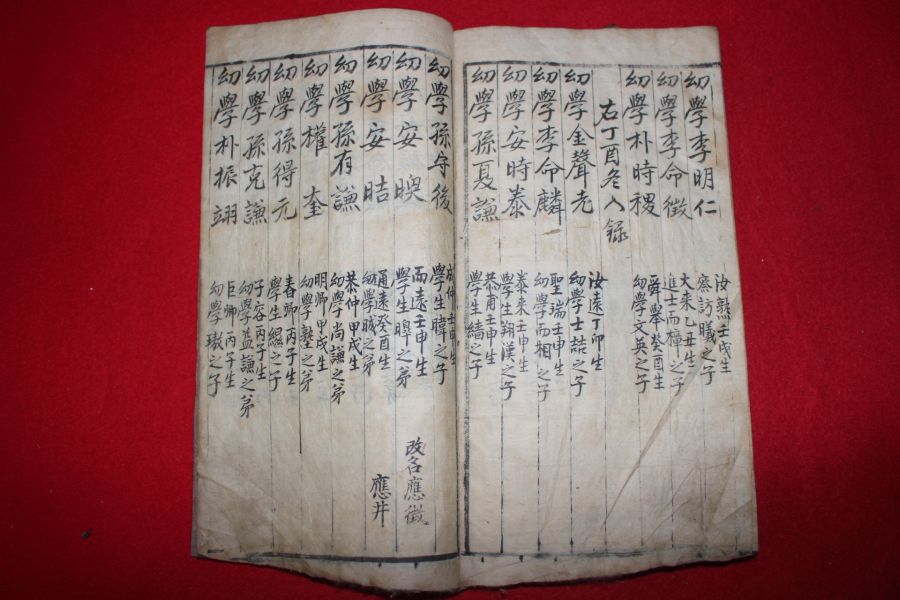 幼學李明仁
汝熟壬戌生
察訪曦之子
幼學李命徵
大來乙丑生
進士而樟之子
幼學朴時稷
舜擧癸酉生
幼學文英之子
右丁酉冬入錄
幼學金聲老
汝遠丁卯生
幼學士喆之子
幼學李命麟
聖瑞壬申生
幼學而相之子
幼學安時泰
泰來壬申生
學生翔漢之子
幼學孫夏謙
恭甫壬申生
學生縉之子
幼學孫守後
成仲壬申生
學生暐之子
幼學安暎
而遠壬申生
學生暭之弟
改名應徵
幼學安晧
通遠癸酉生
幼學晠之弟
應井
幼學孫有謙
恭仲甲戌生
幼學尚謙之弟
幼學權奎
明卿甲戌生
幼學塾之弟
幼學孫得元
春卿丙子生
學生綴之子
幼學孫克謙
子容丙子生
幼學益謙之弟
幼學朴振翊
巨卿丙子生
幼學璬之子